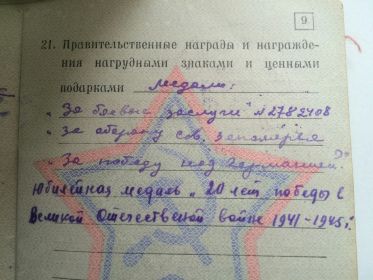 9.
21. Правительственные награды и награжде-
ния нагрудными знаками и ценными
подарками медали:
„За боевые заслуги" №2782408
„За оборону сов. Заполярья
„За победу над Германией"
Юбилейная медаль „20 лет победы в
Великой Отечественой войне 1941-1945г.